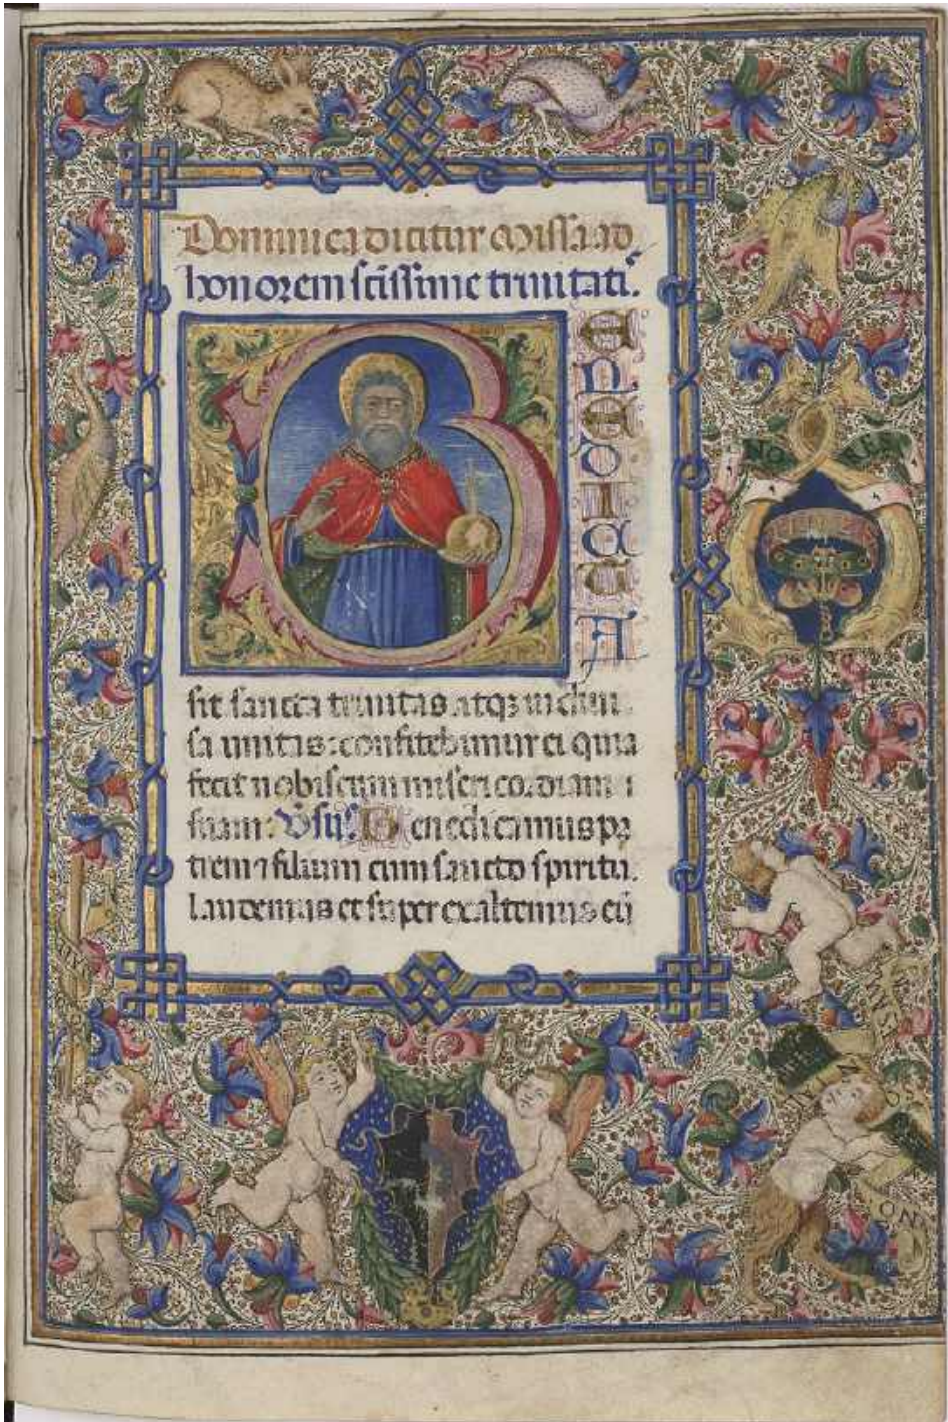 Dominica dicitur Missa ad
honorem scissime trinitati.
BENEDICTA
sit sancta trinitas atqz indiui
sa unitas: confitebimur ei quia
fecit nobiscum misericordiam
suam: Vsus. Benedicamus pa
trem ⁊ filium cum sancto spiritu.
Laudemus et super exaltemus eu